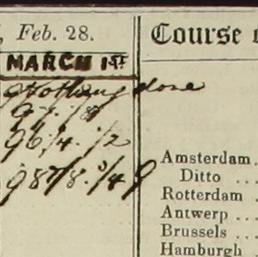 , Feb. 28.
MARCH 1ST
Nothing done
97 1/8
96 1/4 . 1/2
98 7/8 . 3/4 9
Course
Amsterdam...
Ditto ...
Rotterdam ..
Antwerp ...
Brussels ...
Hamburgh